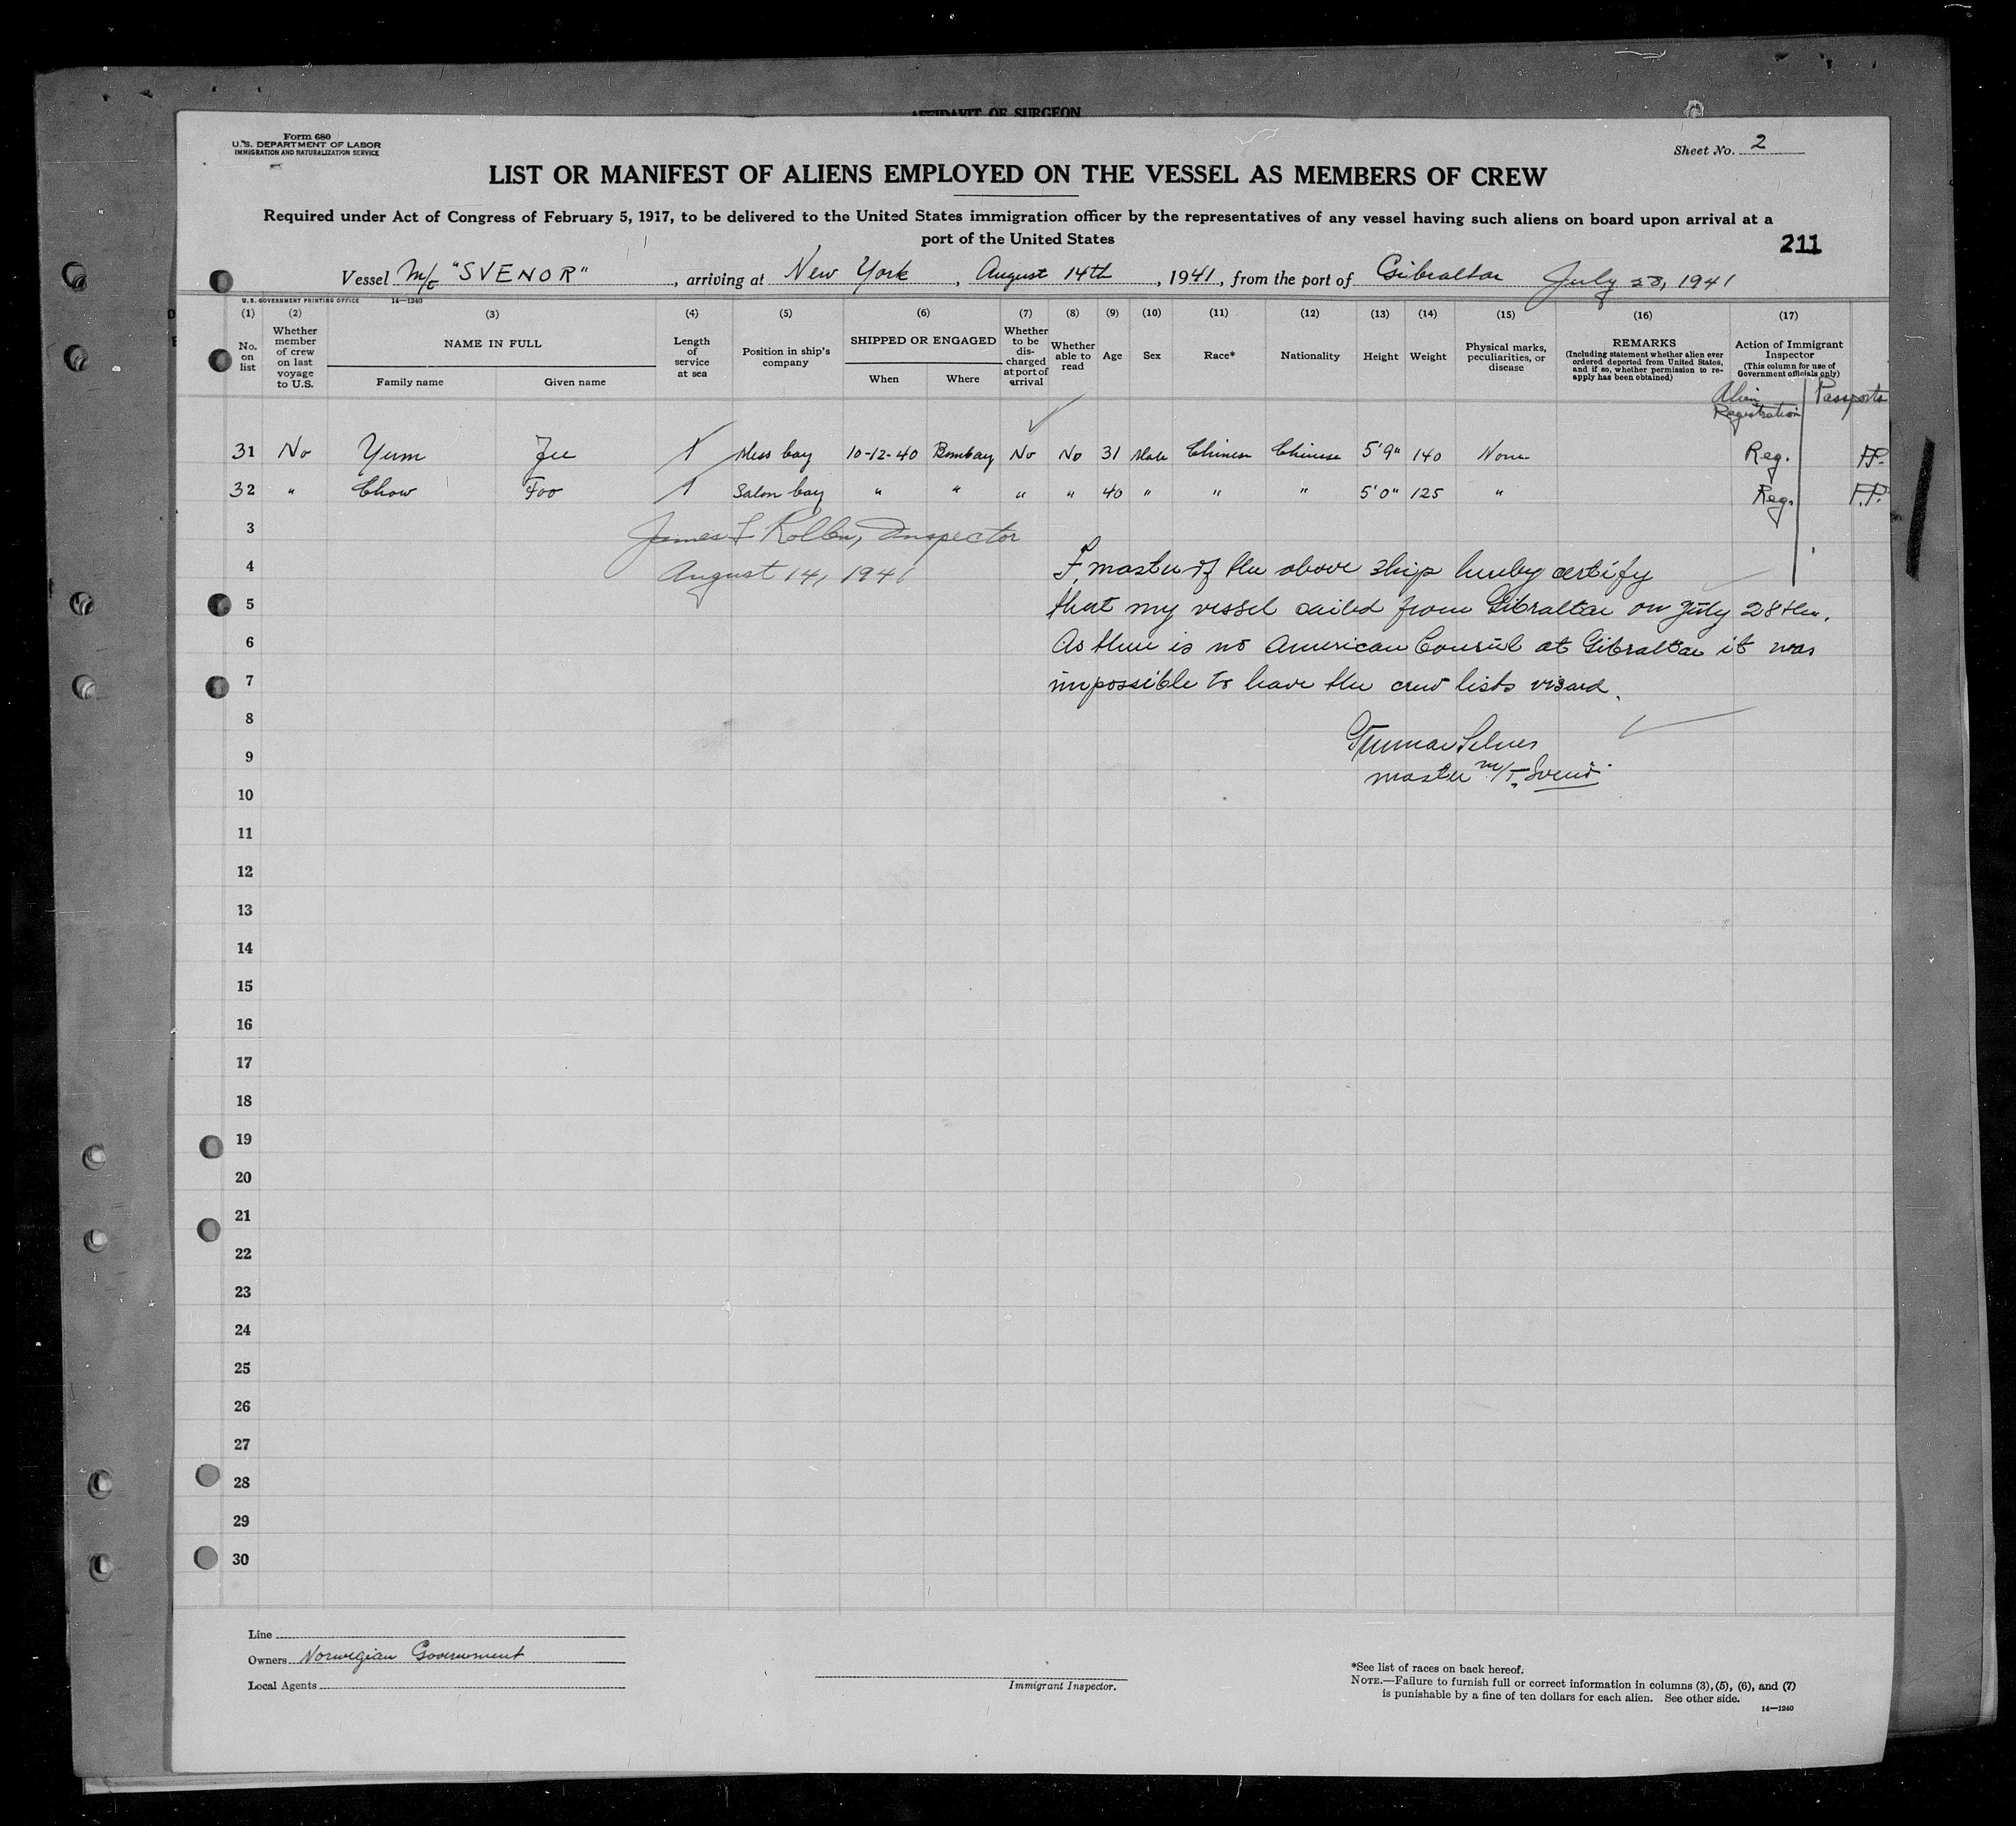 AFFIDAVIT OF SURGEON
Form 680
U.S. DEPARTMENT OF LABOR
IMMIGRATION AND NATURALIZATION SERVICE
Sheet No. 2
LIST OR MANIFEST OF ALIENS EMPLOYED ON THE VESSEL AS MEMBERS OF CREW
Required under Act of Congress of February 5, 1917, to be delivered to the United States immigration officer by the representatives of any vessel having such aliens on board upon arrival at a
port of the United States
211
Vessel M/t "SVENOR", arriving at New York, August 14th, 1941, from the port of Gibraltar July 28, 1941
U. S. GOVERNMENT PRINTING OFFICE 14—1240
(1) (2) (3) (4) (5) (6) (7) (8) (9) (10) (11) (12) (13) (14) (15) (16) (17)
No. on list
Whether member of crew on last voyage to U.S.
NAME IN FULL
Family name Given name
Length of service at sea
Position in ship's company
SHIPPED OR ENGAGED
When Where
Whether to be discharged at port of arrival
Whether able to read
Age
Sex
Race*
Nationality
Height
Weight
Physical marks, peculiarities, or disease
REMARKS
(Including statement whether alien ever ordered deported from United States, and if so, whether permission to reapply has been obtained)
Action of Immigrant Inspector
(This column for use of Government officials only)
Alien Registration Passports
31 No Yum Jee 1 Mess boy 10-12-40 Bombay No No 31 Male Chinese Chinese 5'9" 140 None Reg. P.P.
32 " Chow Foo 1 Salon boy " " " " 40 " " " 5'0" 125 " Reg. P.P.
3
James F Inspector
4
August 14, 1941
I, master of the above ship hereby certify
5
that my vessel sailed from Gibraltar on July 28th.
6
As there is no American Consul at Gibraltar it was
7
impossible to have the crew lists visaed.
8
Gunnar
9
master M/T. Svenör
10
11
12
13
14
15
16
17
18
19
20
21
22
23
24
25
26
27
28
29
30
Line
Owners Norwegian Government
Local Agents
Immigrant Inspector.
*See list of races on back hereof.
NOTE.—Failure to furnish full or correct information in columns (3), (5), (6), and (7)
is punishable by a fine of ten dollars for each alien. See other side.
14—1240